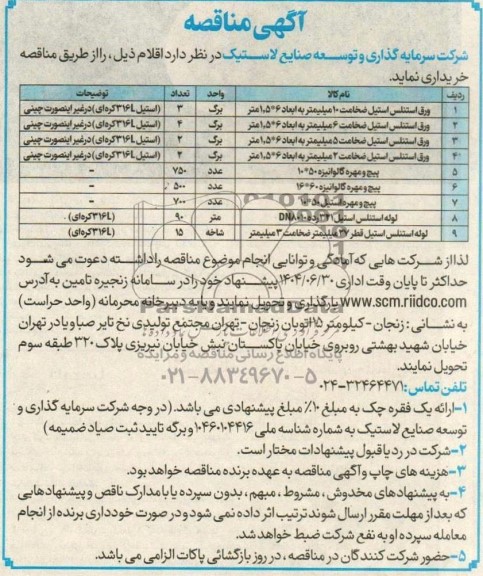 آگهی مناقصه
شرکت سرمایه گذاری و توسعه صنایع لاستیک در نظر دارد اقلام ذیل ، را از طریق مناقصه
خریداری نماید.
ردیف نام کالا واحد تعداد توضیحات
۱ ورق استنلس استیل ضخامت ۱۰ میلیمتر به ابعاد ۶*۱,۵متر برگ ۳ (استیل ۳۱۶L کره‌ای) در غیر اینصورت چینی
۲ ورق استنلس استیل ضخامت ۶ میلیمتر به ابعاد ۶*۱,۵متر برگ ۴ (استیل ۳۱۶L کره‌ای) در غیر اینصورت چینی
۳ ورق استنلس استیل ضخامت ۵ میلیمتر به ابعاد ۶*۱,۵متر برگ ۲ (استیل ۳۱۶L کره‌ای) در غیر اینصورت چینی
۴ ورق استنلس استیل ضخامت ۲ میلیمتر به ابعاد ۶*۱,۵متر برگ ۲ (استیل ۳۱۶L کره‌ای) در غیر اینصورت چینی
۵ پیچ و مهره گالوانیزه ۵۰*۱۰ عدد ۷۵۰ -
۶ پیچ و مهره گالوانیزه ۶۰*۱۶ عدد ۵۰۰ -
۷ پیچ و مهره استیل ۵۰*۱۰ عدد ۷۰۰ -
۸ لوله استنلس استیل رده DN۸۰ متر ۹۰ (۳۱۶L کره‌ای) .
۹ لوله استنلس استیل قطر ۲۷ میلیمتر ضخامت ۳ میلیمتر شاخه ۱۵ (۳۱۶L کره‌ای)
لذا از شرکت هایی که آمادگی و توانایی انجام موضوع مناقصه را داشته دعوت می شود
حداکثر تا پایان وقت اداری ۱۴۰۴/۰۶/۳۰ پیشنهاد خود را در سامانه زنجیره تامین به آدرس
www.scm.riidco.com بارگذاری و تحویل نمایند و یا به دبیرخانه محرمانه (واحد حراست)
به نشانی : زنجان - کیلومتر ۱۵ اتوبان زنجان - تهران مجتمع تولیدی نخ تایر صبا و یا در تهران
خیابان شهید بهشتی روبروی خیابان پاکستان - نبش خیابان نبریزی پلاک ۳۲۰ طبقه سوم
تحویل نمایند.
پایگاه اطلاع رسانی مناقصه و مزایده
تلفن تماس: ۳۲۴۶۴۴۷۱-۰۲۴
۰۲۱-۸۸۳۴۹۶۷۰-۵
۱-ارائه یک فقره چک به مبلغ ۱۰٪ مبلغ پیشنهادی می باشد. (در وجه شرکت سرمایه گذاری و
توسعه صنایع لاستیک به شماره شناسه ملی ۱۰۴۶۰۱۰۴۴۱۶ و برگه تایید ثبت صیاد ضمیمه )
۲-شرکت در رد یا قبول پیشنهادات مختار است.
۳-هزینه های چاپ و آگهی مناقصه به عهده برنده مناقصه خواهد بود.
۴-به پیشنهادهای مخدوش ، مشروط ، مبهم ، بدون سپرده یا با مدارک ناقص و پیشنهادهایی
که بعد از مهلت مقرر ارسال شوند ترتیب اثر داده نمی شود و در صورت خودداری برنده از انجام
معامله سپرده او به نفع شرکت ضبط خواهد شد.
۵-حضور شرکت کنندگان در مناقصه ، در روز بازگشائی پاکات الزامی می باشد.